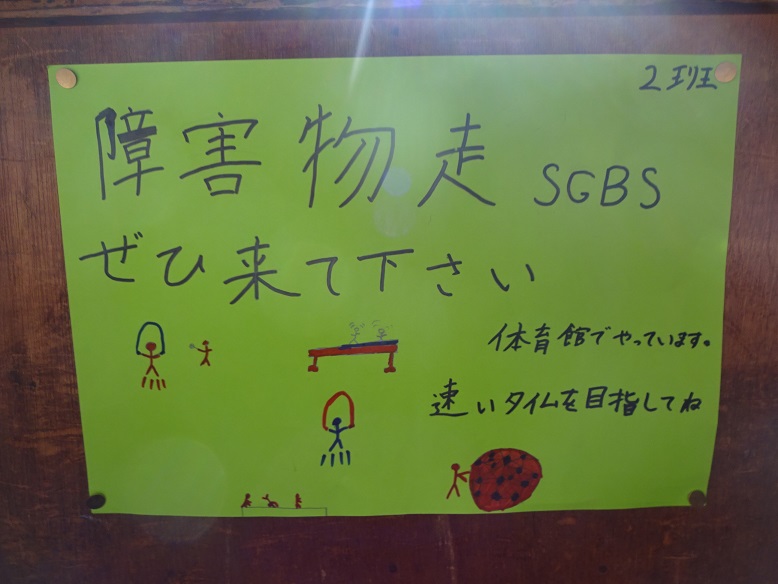 2班
障害物走 SGBS
ぜひ来て下さい
体育館でやっています。
速いタイムを目指してね